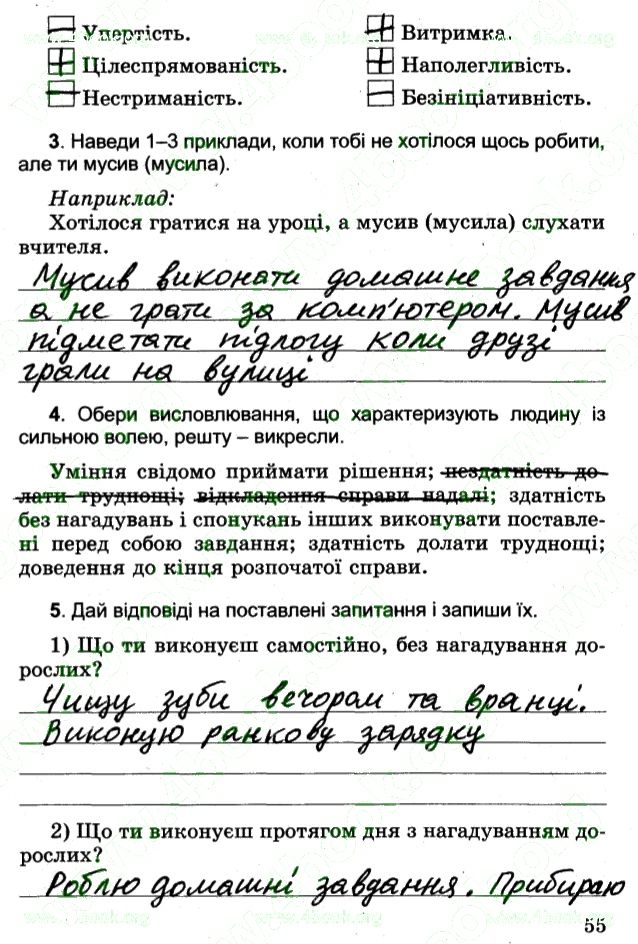 Упертість. Витримка.
Цілеспрямованість. Наполегливість.
Нестриманість. Безініціативність.
3. Наведи 1–3 приклади, коли тобі не хотілося щось робити,
але ти мусив (мусила).
Наприклад:
Хотілося гратися на уроці, а мусив (мусила) слухати
вчителя.
Мусив виконати домашнє завдання
а не грати за комп'ютером. Мусив
підметати підлогу коли друзі
грали на вулиці
4. Обери висловлювання, що характеризують людину із
сильною волею, решту – викресли.
Уміння свідомо приймати рішення; нездатність до-
лати труднощі; відкладення справи надалі; здатність
без нагадувань і спонукань інших виконувати поставле-
ні перед собою завдання; здатність долати труднощі;
доведення до кінця розпочатої справи.
5. Дай відповіді на поставлені запитання і запиши їх.
1) Що ти виконуєш самостійно, без нагадування до-
рослих?
Чищу зуби вечором та вранці.
Виконую ранкову зарядку
2) Що ти виконуєш протягом дня з нагадуванням до-
рослих?
Роблю домашні завдання. Прибираю
55